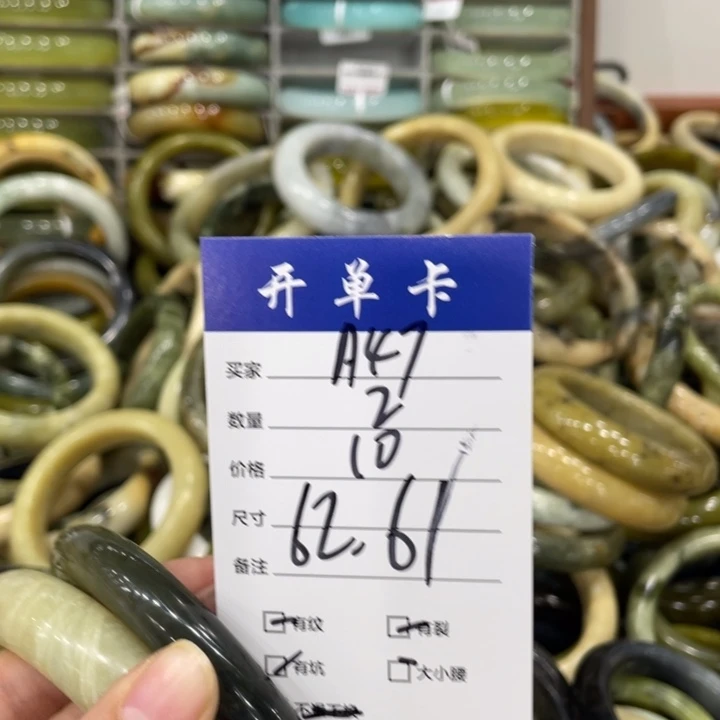 开单卡
买家 A47
数量 2
价格 10
尺寸 62.61
备注
有纹 有裂
有坑 大小腰